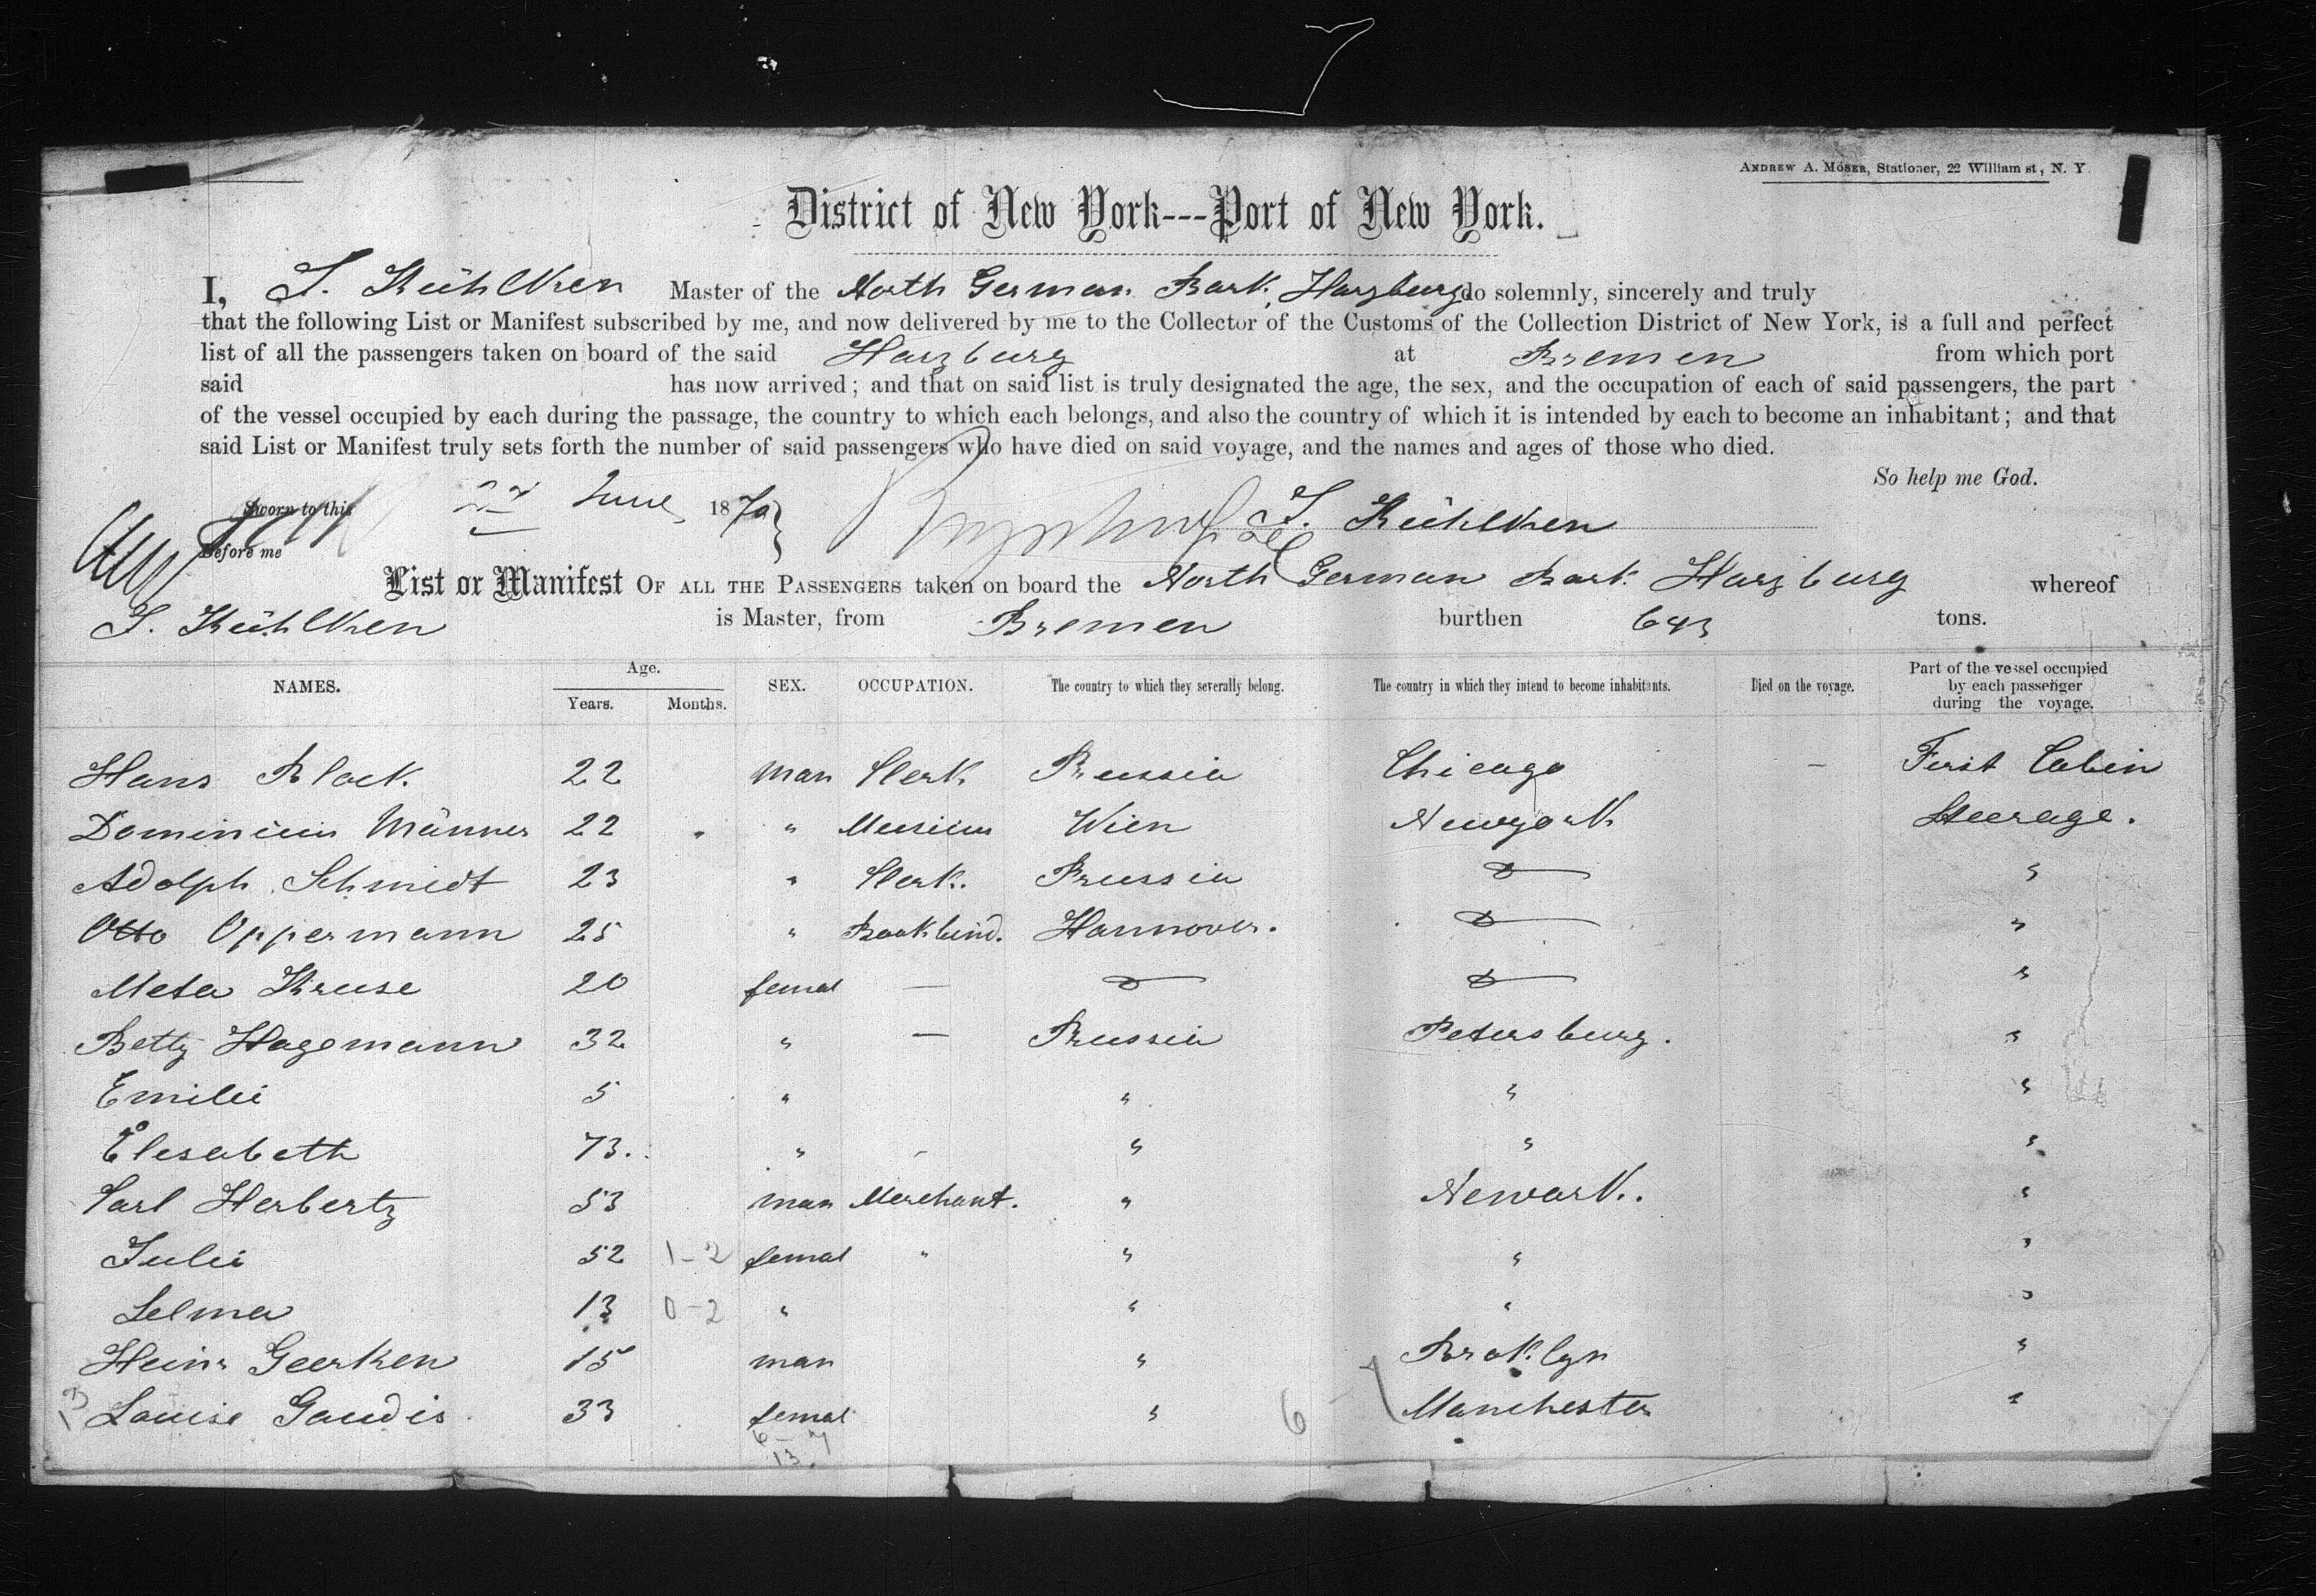 ANDREW A. MOSER, Stationer, 22 William st, N. Y
District of New York---Port of New York.
I, J. Kühlken Master of the North German Bark Harzburg do solemnly, sincerely and truly
that the following List or Manifest subscribed by me, and now delivered by me to the Collector of the Customs of the Collection District of New York, is a full and perfect
list of all the passengers taken on board of the said Harzburg at Bremen from which port
said has now arrived; and that on said list is truly designated the age, the sex, and the occupation of each of said passengers, the part
of the vessel occupied by each during the passage, the country to which each belongs, and also the country of which it is intended by each to become an inhabitant; and that
said List or Manifest truly sets forth the number of said passengers who have died on said voyage, and the names and ages of those who died.
So help me God.
Sworn to this 22 June 1870 J. Kühlken
Before me
List or Manifest OF ALL THE PASSENGERS taken on board the North German Bark Harzburg whereof
J. Kühlken is Master, from Bremen burthen 643 tons.
NAMES. Age. Years. Months. SEX. OCCUPATION. The country to which they severally belong. The country in which they intend to become inhabitants. Died on the voyage. Part of the vessel occupied by each passenger during the voyage.
Hans Block 22 man Clerk Prussia Chicago – First Cabin
Männer 22 " " Wien Newyork Steerage.
Adolph Schmidt 23 " Clerk. Prussia do "
Otto Oppermann 25 " Bookbind. Hannover. do "
Meta Kruse 20 femal — do do "
Betty Hagemann 32 " — Prussia Petersburg. "
Emilie 5 " " " "
Elesabeth 73. " - " " "
Carl Herbertz 53 man Merchant. " Newark. "
Julie 52 1-2 femal " " " "
Selma 13 0-2 " " " "
Heinr Geerken 15 man " Broklyn "
13 Louise Gaudis 33 femal " 6 Manchester "
6 – 7
13